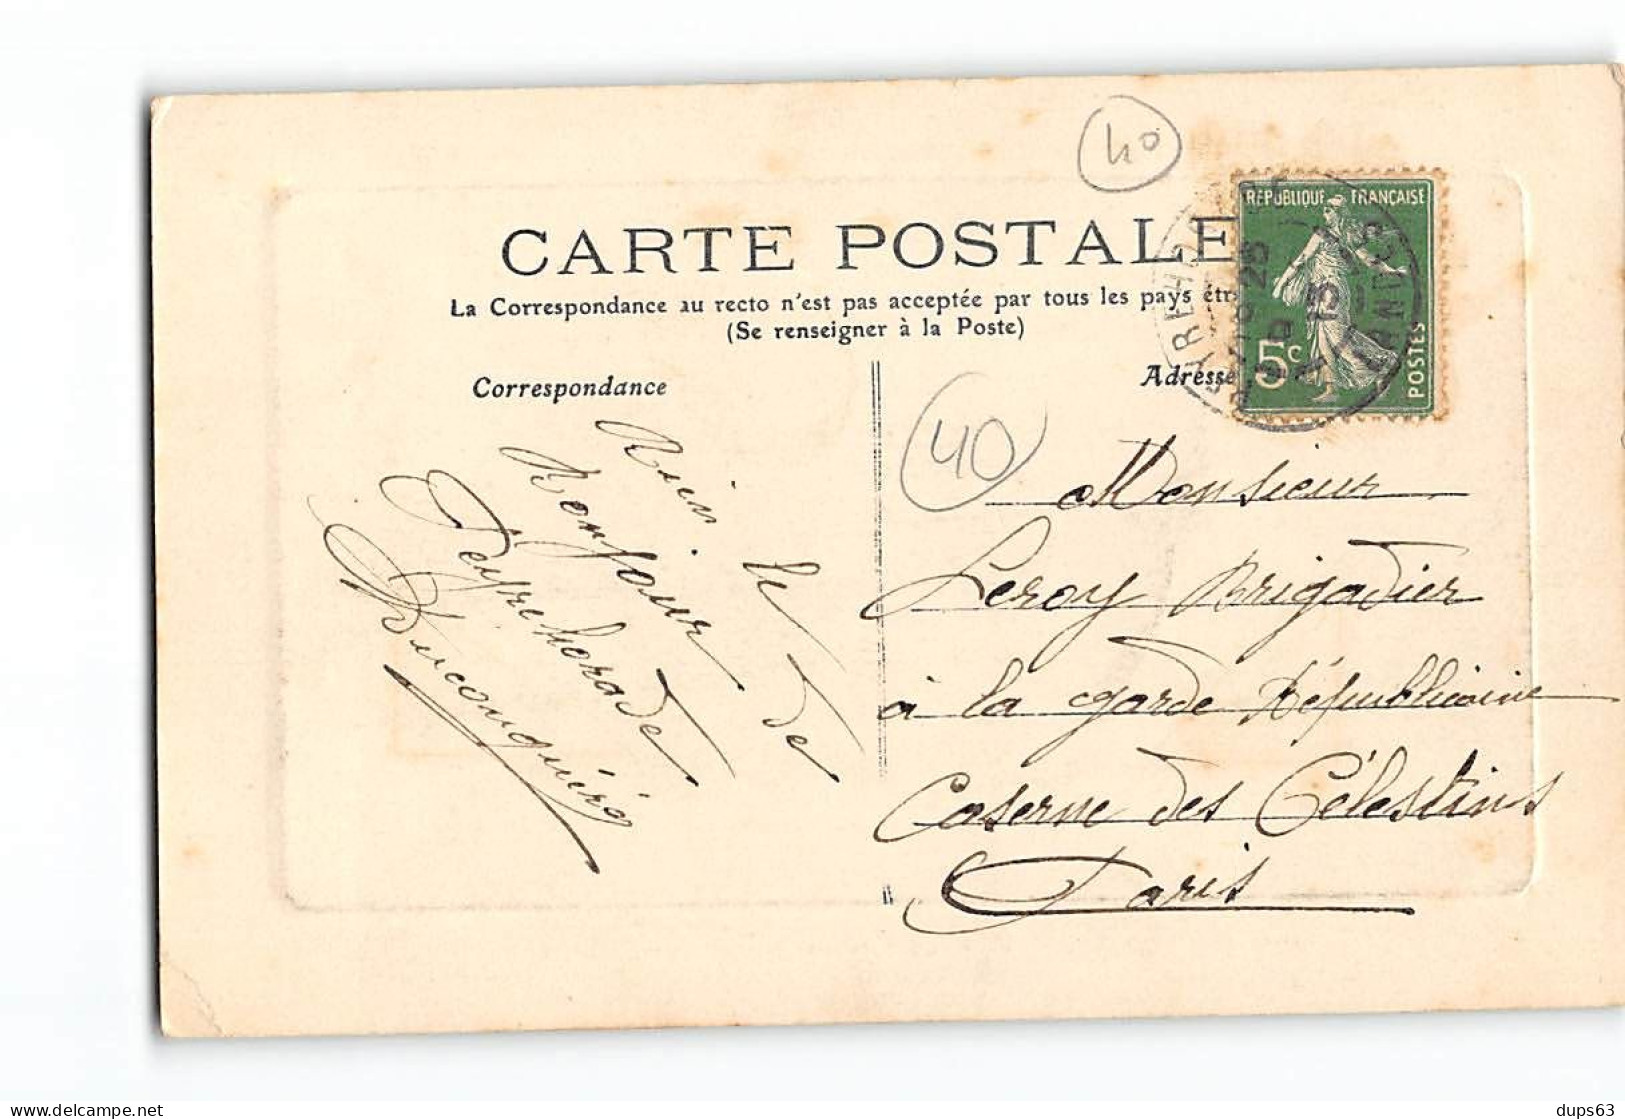 40
RÉPUBLIQUE FRANÇAISE
CARTE POSTALE
La Correspondance au recto n'est pas acceptée par tous les pays étr
(Se renseigner à la Poste)
5c
POSTES
LANDES
Correspondance
Adresse
40
Rien le
Bonjour de
Peyrehorade
Monsieur
Leroy Brigadier
à la garde Républicaine
Caserne des Célestins
Paris
dups63